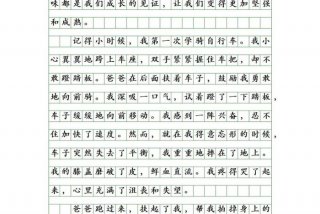 味都是我们成长的见证，让我们变得更加坚强
和成熟。
记得小时候，我第一次学骑自行车。我小
心翼翼地跨上车座，双手紧紧握住车把，却不
敢蹬踏板。爸爸在后面扶着车子，鼓励我勇敢
地向前骑。我深吸一口气，试着蹬了一下踏板，
车子缓缓地向前移动。我感到一阵兴奋，忍不
住加快了速度。然而，就在我得意忘形的时候，
车子突然失去了平衡，我重重地摔在了地上。
我的膝盖磨破了皮，鲜血直流。我疼得哭了起
来，心里充满了沮丧和失望。
爸爸跑过来，扶起了我，帮我拍掉身上的